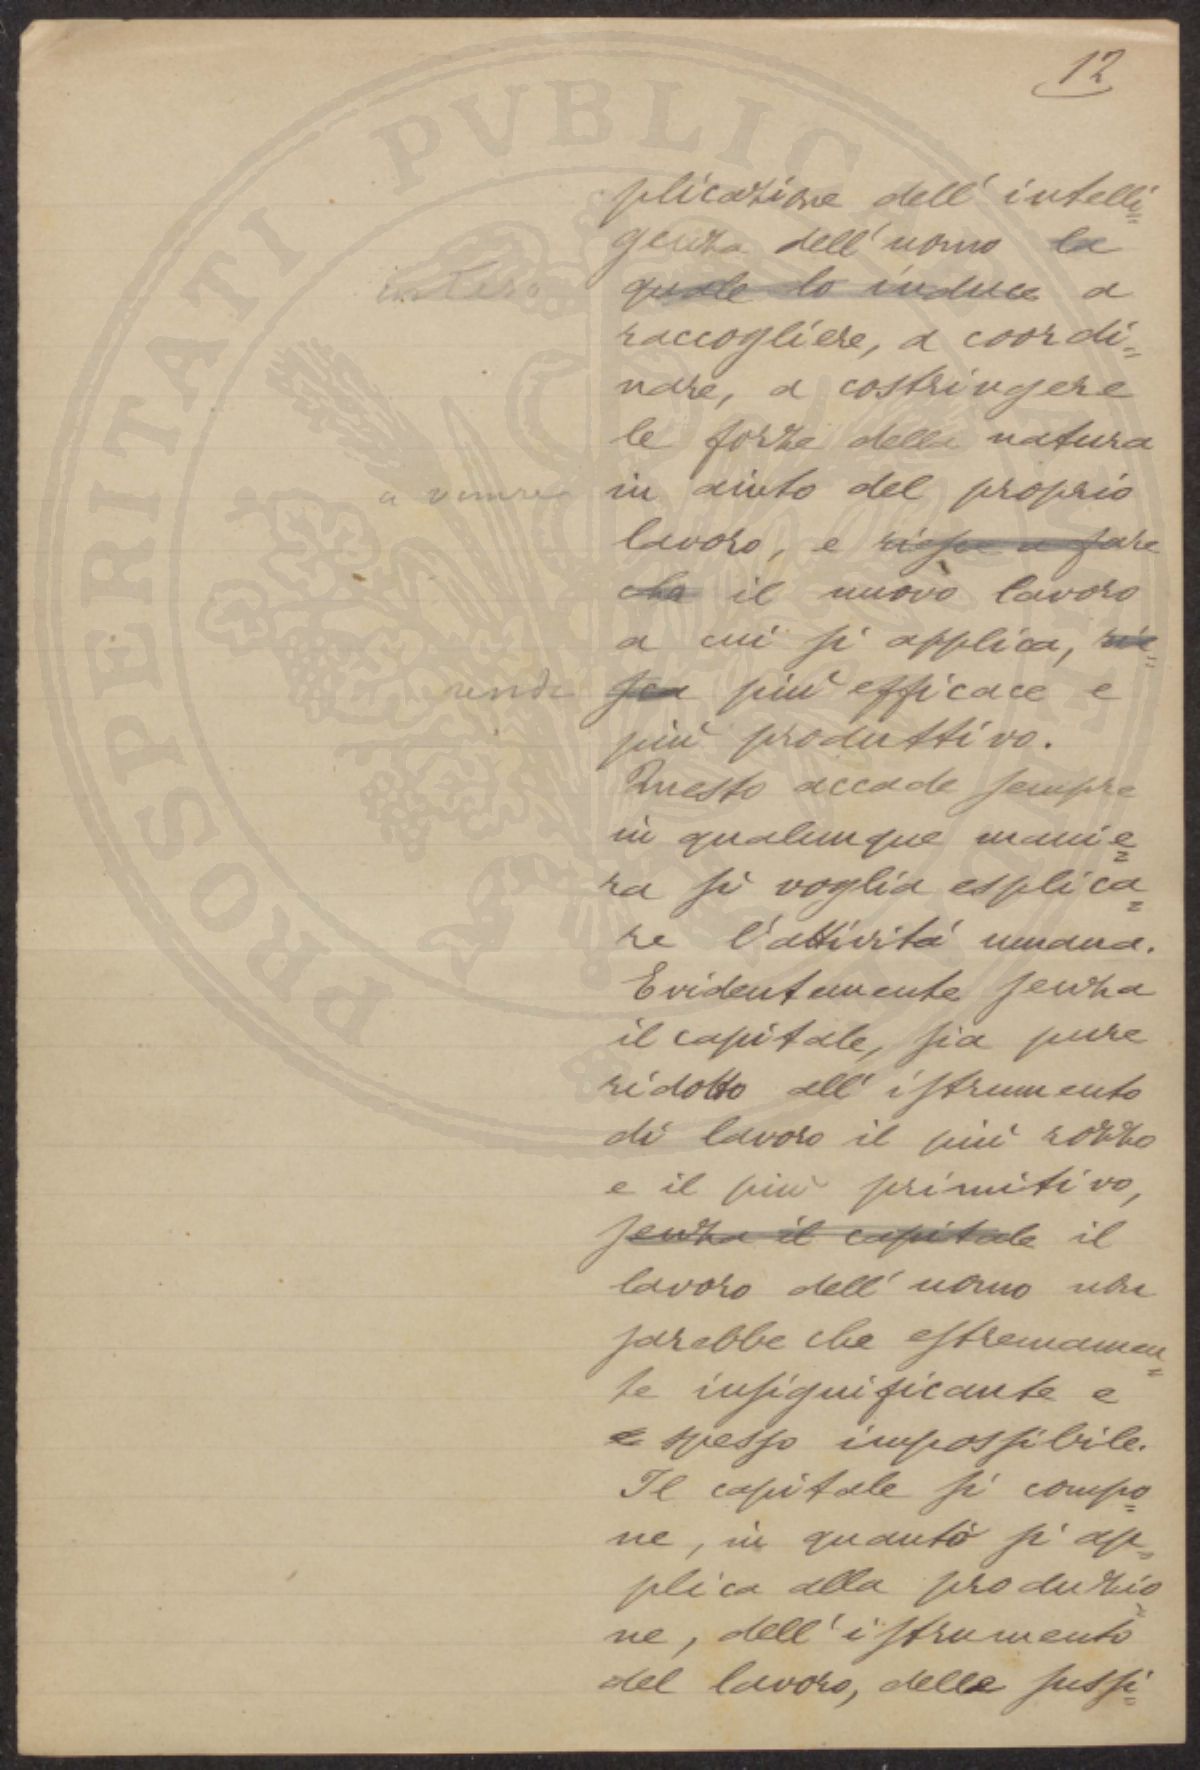 12
plicazione dell'intelli=
genza dell'uomo la
intesa quale lo induce a
raccogliere, a coordi=
nare, a costringere
le forze della natura
a venire in aiuto del proprio
lavoro, e riesce a fare
che il nuovo lavoro
a cui si applica, rie=
rende sca più efficace e
più produttivo.
Questo accade sempre
in qualunque manie=
ra si voglia esplica=
re l'attività umana.
Evidentemente senza
il capitale, sia pure
ridotto all'istrumento
di lavoro il più rozzo
e il più primitivo,
senza il capitale il
lavoro dell'uomo non
sarebbe che estremamen=
te insignificante e
e spesso impossibile.
Il capitale si compo=
ne, in quanto si ap=
plica alla produzio=
ne, dell'istrumento
del lavoro, delle sussi=
PROSPERITATI PVBLICAE